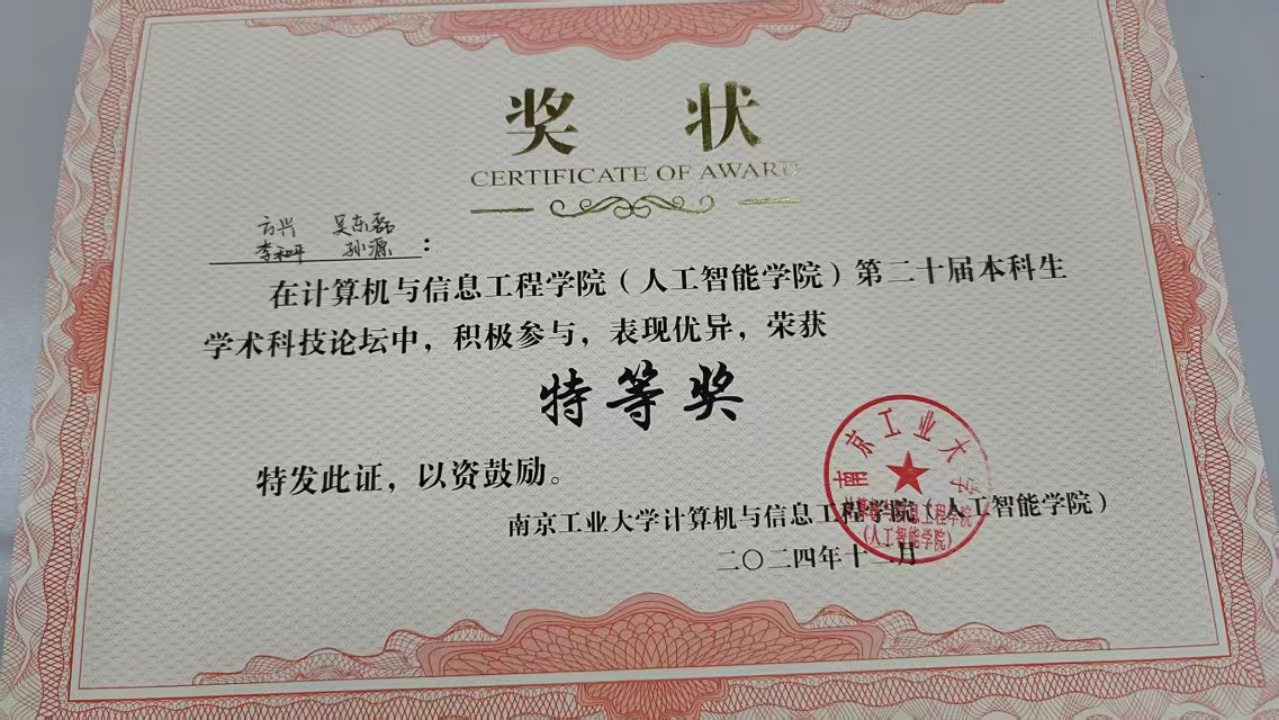 奖 状
CERTIFICATE OF AWARD
方兴 吴东磊
李和平 孙源：
在计算机与信息工程学院（人工智能学院）第二十届本科生
学术科技论坛中，积极参与，表现优异，荣获
特等奖
特发此证，以资鼓励。
南京工业大学计算机与信息工程学院（人工智能学院）
二〇二四年十二月
南京工业大学
计算机与信息工程学院
（人工智能学院）